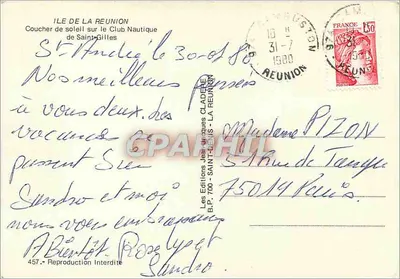 ILE DE LA REUNION
Coucher de soleil sur le Club Nautique
de Saint-Gilles
St André le 30-07 80
Nos meilleures pensées
à vous deux. Les
vacances se
passent bien
Sandro et moi
nous vous embrassons
A Bientôt. Rose Lyne et
Sandro
457.- Reproduction Interdite
Les Editions Jean-Jacques CLADERE
B.P. 100 - SAINT-DENIS - LA REUNION
31-7
1980
REUNION
FRANCE
REUNION
Madame PIZON
51 Rue de
75014 Paris.
CPARAMA